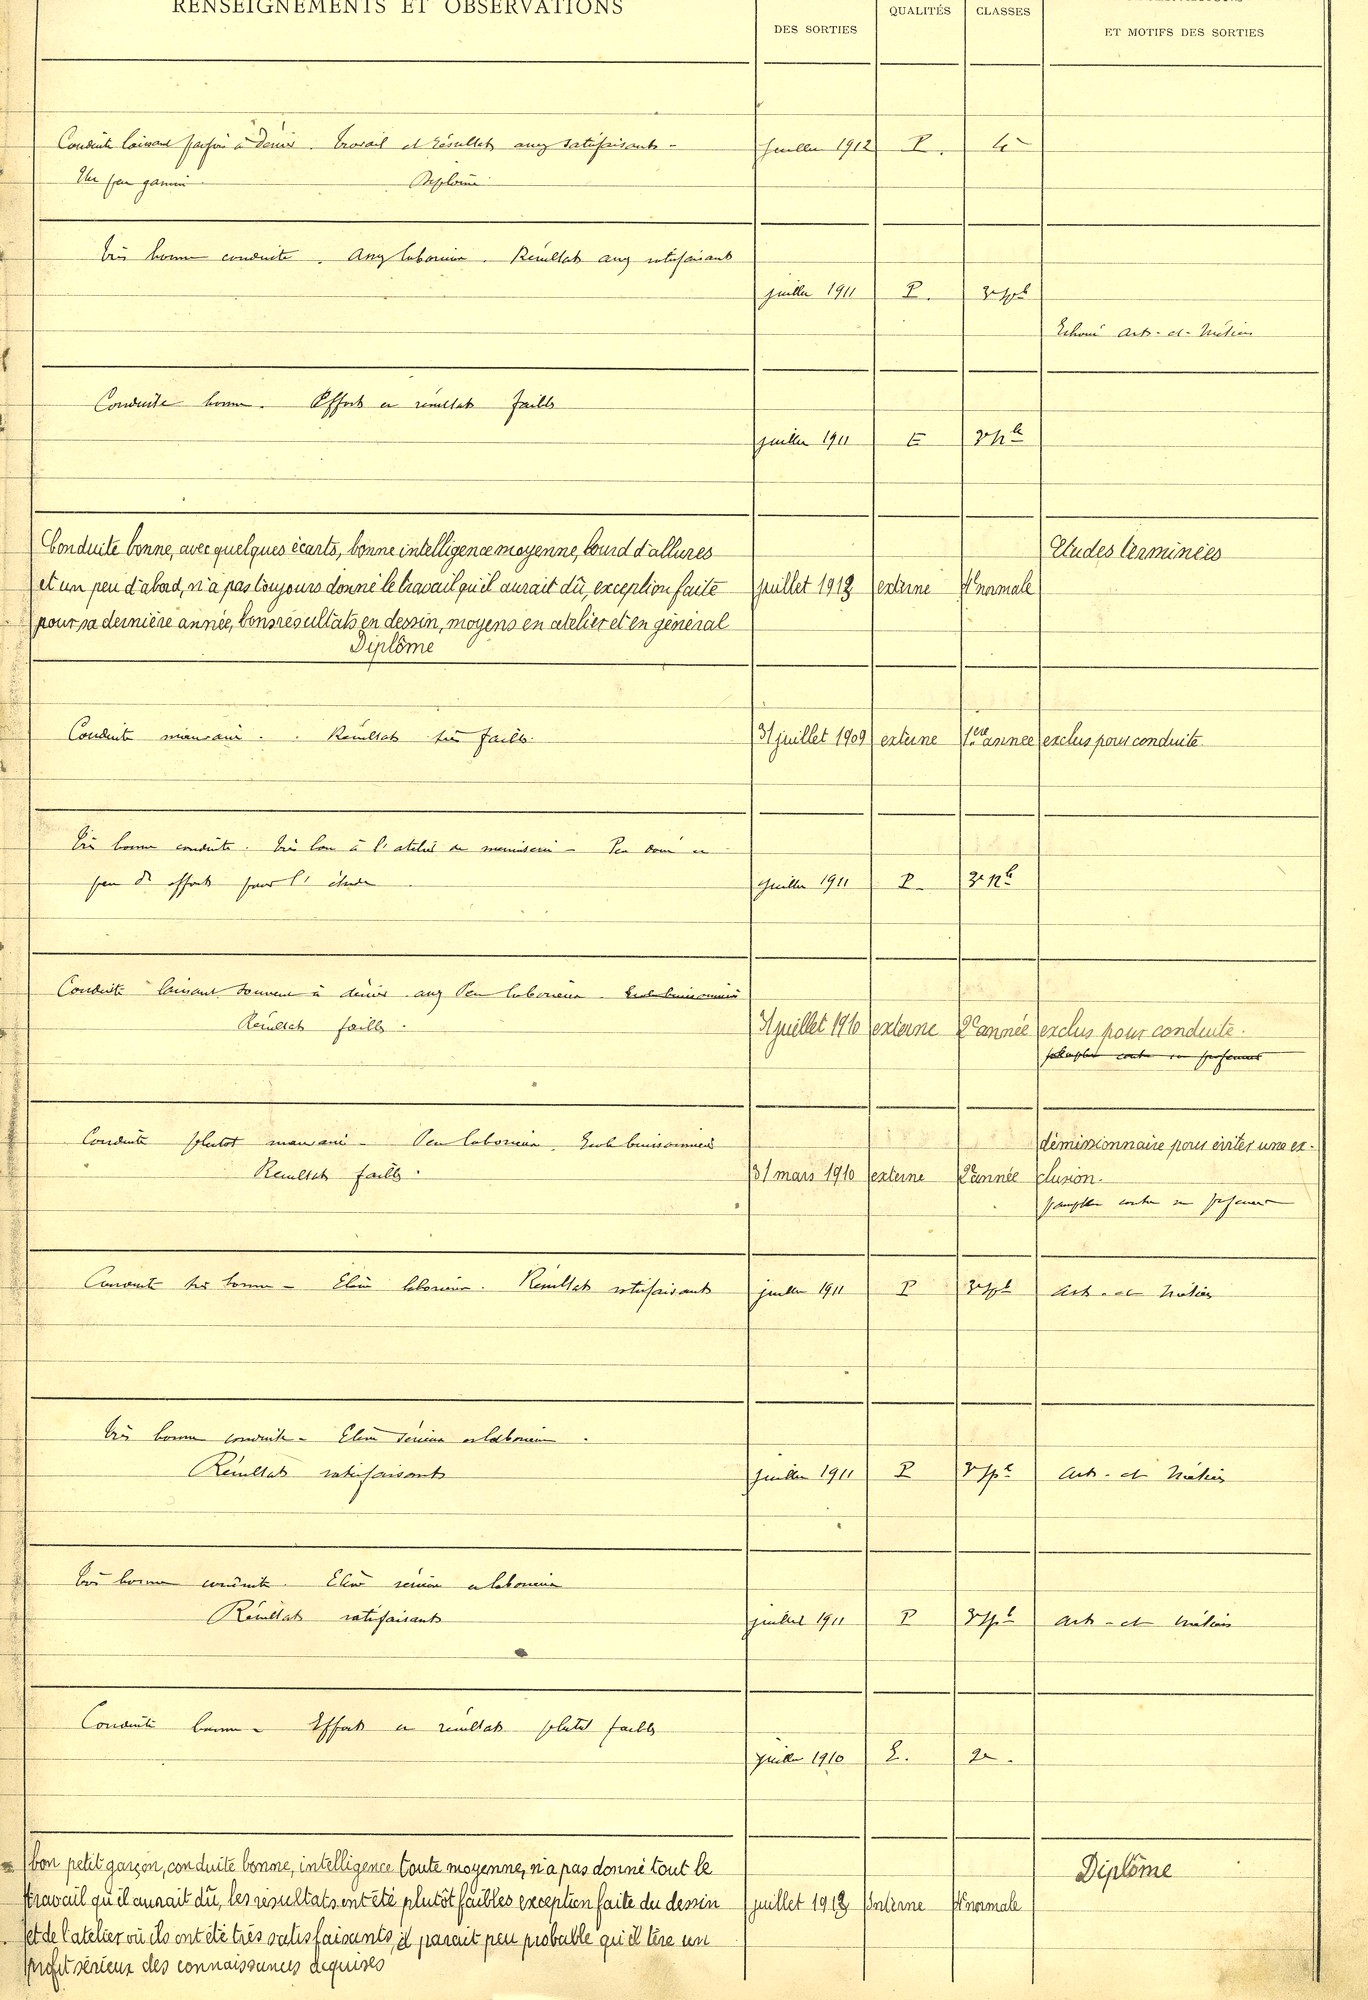 RENSEIGNEMENTS ET OBSERVATIONS
DES SORTIES
QUALITÉS
CLASSES
ET MOTIFS DES SORTIES
Conduite laissant parfois à désirer. Travail et résultats assez satisfaisants -
Un peu gamin. Diplômé
juillet 1912 P. 4e
Très bonne conduite. Assez laborieux. Résultats assez satisfaisants
juillet 1911 P. 3e
Echoué Arts-et-Métiers
Conduite bonne. Efforts et résultats faibles
juillet 1911 E 3e Nle
Conduite bonne, avec quelques écarts, bonne intelligence moyenne, lourd d'allures
et un peu d'abord, n'a pas toujours donné le travail qu'il aurait dû, exception faite
pour sa dernière année, bons résultats en dessin, moyens en atelier et en général
Diplôme
juillet 1912 externe 4e normale
Etudes terminées
Conduite mauvaise. . Résultats très faibles.
31 juillet 1909 externe 1ère année exclus pour conduite.
Très bonne conduite. Très bon à l'atelier de menuiserie - Peu doué et
peu d'efforts pour l'étude
juillet 1911 P. 3e Nle
Conduite laissant souvent à désirer assez Peu laborieux. Ecole buissonnière
Résultats faibles.
31 juillet 1910 externe 2e année exclus pour conduite.
pamphlet contre un professeur
Conduite plutot mauvaise - Peu laborieux. Ecole buissonnière
Résultats faibles.
31 mars 1910 externe 2e année
démissionnaire pour éviter une ex-
clusion.
pamphlet contre un professeur
Conduite très bonne - Elève laborieux. Résultats satisfaisants
juillet 1911 P 3e Arts-et-Métiers
Très bonne conduite - Elève sérieux et laborieux.
Résultats satisfaisants
juillet 1911 P 3e Arts-et-Métiers
Très bonne conduite. Elève sérieux et laborieux
Résultats satisfaisants
juillet 1911 P 3e Arts-et-Métiers
Conduite bonne - Efforts et résultats plutôt faibles
juillet 1910 E. 2e.
bon petit garçon, conduite bonne, intelligence toute moyenne, n'a pas donné tout le
travail qu'il aurait dû, les résultats ont été plutôt faibles exception faite du dessin
et de l'atelier où ils ont été très satisfaisants, il parait peu probable qu'il tire un
profit sérieux des connaissances acquises
juillet 1912 Interne 4e normale
Diplôme